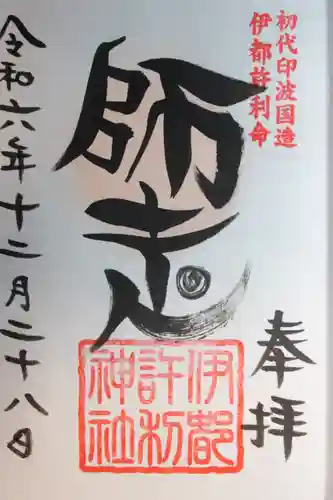 初代印波国造
伊都許利命
奉拝
師走
伊都
許利
神社
令和六年十二月二十八日